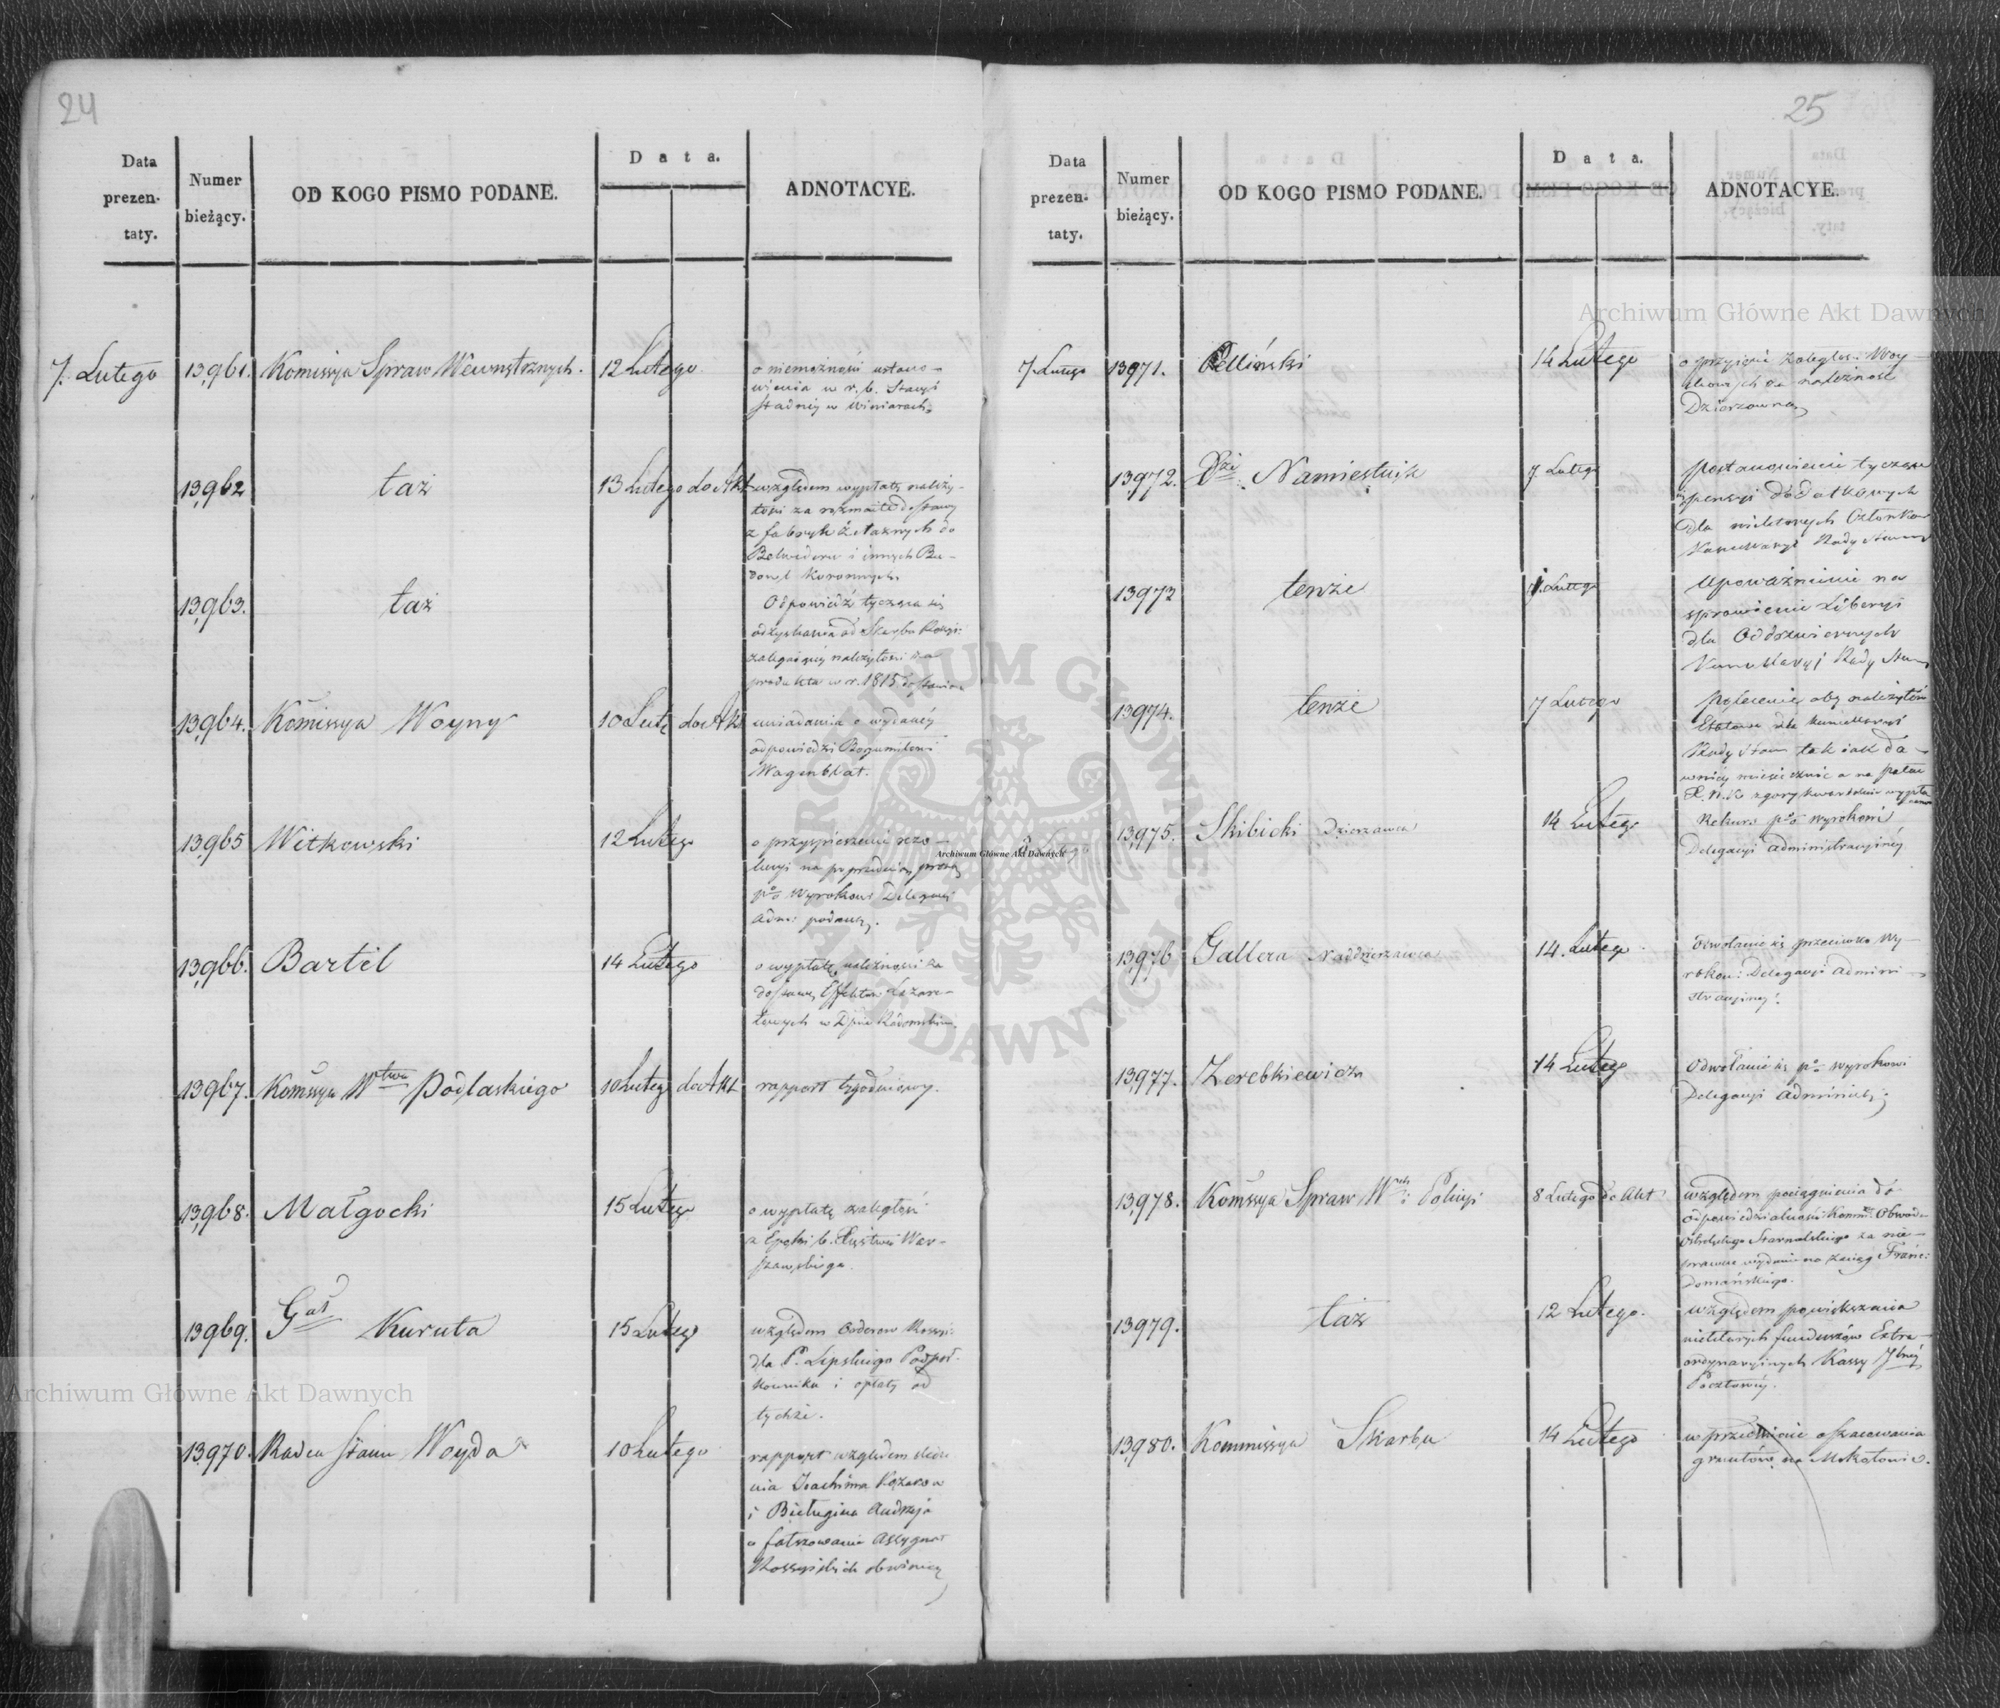 24
Data prezen- taty.
Numer bieżący.
OD KOGO PISMO PODANE.
Data.
ADNOTACYE.
7. Lutego 13,961. Komissya Spraw Wewnętrznych. 12 Lutego
o niemożności ustano-
wienia w r. b. Stacyi
stadniy w Winiarach
13,962 taż 13 Lutego do Akt
względem wypłaty należy-
tości za rozmaite dostawy
z fabryk żelaznych do
Belwederu i innych Bu-
dowl Koronnych
13,963. taż
Odpowiedź tycząca się
odzyskania od Skarbu Rossyi:
zalegaiącéj należytości za
produkta w r. 1815 dostawion
13,964. Komissya Woyny 10 Lutg do Akt
uwiadamia o wydanéy
odpowiedzi Bogumiłowi
Wagenblat.
13,965 Witkowski 12 Lutego
o przyspieszenie rezo-
lucyi na poprzednią prozbę
pko Wyrokowi Delegacyi
Adm: podaną.
13,966. Bartel 14 Lutego
o wypłatę należności za
dostawę Effektów Lazare-
towych w Dpcie Radomskim.
13,967. Komissya Wtwa Podlaskiego 10 Luteg do Akt
rapport tygodniowy.
13,968. Małgocki 15 Lutego
o wypłatę zaległości
z Epoki b. Xięstwa War-
szawskiego.
13,969. Gał Kuruta 15 Lutego
względem Orderow Rossyi:
dla P. Lipskiego Podpuł-
kownika i opłaty od
tychże.
13,970. Radca Stanu Woyda 10 Lutego
rapport względem
Joachima Kozakowa
i Andrzeja
o fałszowanie Assygnat
Rossyiskich obwinieq
25
Data prezen- taty.
Numer bieżący.
OD KOGO PISMO PODANE.
Data.
ADNOTACYE.
7. Lutego 13,971. 14 Lutego
o przyięcie zaległości Woy-
skowych za należność
Dzierzawną
13,972. Xżę Namiestnik 7. Lutego
postanowienie tyczące
pensyi dodatkowych
dla niektorych Członkow
Kancellaryi Rady Stanu
13,973 tenże 7. Lutego
Upoważnienie na
sprawienie Liberyi
dla Oddzwiernych
Kancellaryi Rady Stanu
13,974. tenże 7 Lutego
Polecenie aby należytości
Etatowe dla kancellaryi
Rady Stanu tak iak da-
wniéy mieśięcznie a na pałac
X. N. z gory kwartalnie wypła
cano
8 Lutego 13,975. Skibicki Dzierzawca 14 Lutego
Rekurs pko wyrokowi
Delegacyi administracyinéy
13,976 Gallera Naddzierzawca 14. Lutego
odwołanie się przeciwko wy-
rokowi Delegacyi admini-
stracyinéy.
13,977. Zerebkiewicza 14 Lutego
Odwołanie się pko wyrokowi
Delegacyi Administ:
13,978. Komissya Spraw Wch i Policyi 8 Lutego do Akt
względem pociągnienia do
odpowiedzialności Komm. Obwodu
Starnalskiego za nie-
prawne wydanie na zaciąg Franc:
Domańskiego.
13,979. taż 12 Lutego.
względem powiększenia
niektorych funduszow Extra-
ordynaryinych Kassy Jlnéj
Pocztowéy.
13,980. Kommissya Skarbu 14 Lutego
w przedmiocie oszacowania
gruntów na Mokotowie.
Archiwum Główne Akt Dawnych
Archiwum Główne Akt Dawnych
Archiwum Główne Akt Dawnych
ARCHIWUM GŁÓWNE AKT DAWNYCH